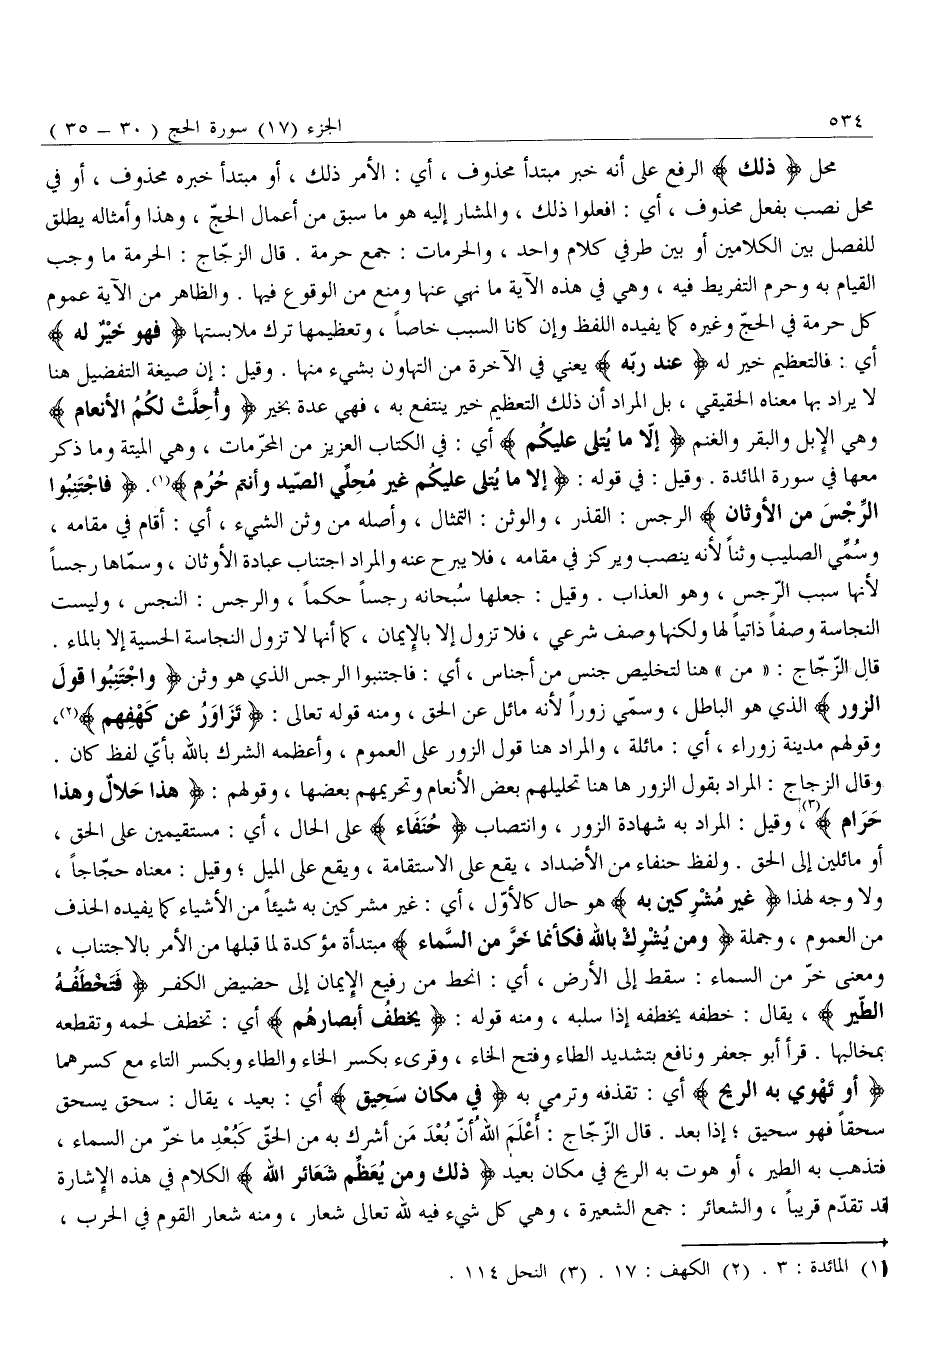 ٥٣٤ الجزء (١٧) سورة الحج ( ٣٠ – ٣٥ )
محل ﴿ ذلك ﴾ الرفع على أنه خبر مبتدأ محذوف ، أي : الأمر ذلك ، أو مبتدأ خبره محذوف ، أو في
محل نصب بفعل محذوف ، أي : افعلوا ذلك ، والمشار إليه هو ما سبق من أعمال الحجّ ، وهذا وأمثاله يطلق
للفصل بين الكلامين أو بين طرفي كلام واحد ، والحرمات : جمع حرمة . قال الزجّاج : الحرمة ما وجب
القيام به وحرم التفريط فيه ، وهي في هذه الآية ما نهي عنها ومنع من الوقوع فيها . والظاهر من الآية عموم
كل حرمة في الحجّ وغيره كما يفيده اللفظ وإن كانا السبب خاصاً ، وتعظيمها ترك ملابستها ﴿ فهو خَيْرٌ له ﴾
أي : فالتعظيم خير له ﴿ عند ربّه ﴾ يعني في الآخرة من التهاون بشيء منها . وقيل : إن صيغة التفضيل هنا
لا يراد بها معناه الحقيقي ، بل المراد أن ذلك التعظيم خير ينتفع به ، فهي عدة بخير ﴿ وأُحِلَّتْ لكُمُ الأنعام ﴾
وهي الإبل والبقر والغنم ﴿ إلّا ما يُتلى عليكُم ﴾ أي : في الكتاب العزيز من المحرّمات ، وهي الميتة وما ذكر
معها في سورة المائدة . وقيل : في قوله : ﴿ إلا ما يُتلى عليكم غير مُحِلّي الصّيد وأنتم حُرُم ﴾(١). ﴿ فاجْتَنِبُوا
الرِّجْسَ من الأوثان ﴾ الرجس : القذر ، والوثن : التمثال ، وأصله من وثن الشيء ، أي : أقام في مقامه ،
وسُمِّي الصليب وثناً لأنه ينصب ويركز في مقامه ، فلا يبرح عنه والمراد اجتناب عبادة الأوثان ، وسمّاها رجساً
لأنها سبب الرّجس ، وهو العذاب . وقيل : جعلها سُبحانه رجساً حكماً ، والرجس : النجس ، وليست
النجاسة وصفاً ذاتياً لها ولكنها وصف شرعي ، فلا تزول إلا بالإيمان ، كما أنها لا تزول النجاسة الحسية إلا بالماء .
قال الزّجّاج : « من » هنا لتخليص جنس من أجناس ، أي : فاجتنبوا الرجس الذي هو وثن ﴿ واجْتَنِبُوا قولَ
الزور ﴾ الذي هو الباطل ، وسمّي زوراً لأنه مائل عن الحق ، ومنه قوله تعالى : ﴿ تَزاوَرُ عن كَهْفِهم ﴾(٢)،
وقولهم مدينة زوراء ، أي : مائلة ، والمراد هنا قول الزور على العموم ، وأعظمه الشرك بالله بأيّ لفظ كان .
وقال الزجاج : المراد بقول الزور ها هنا تحليلهم بعض الأنعام وتحريمهم بعضها ، وقولهم : ﴿ هذا حَلالٌ وهذا
حَرَام ﴾(٣)، وقيل : المراد به شهادة الزور ، وانتصاب ﴿ حُنَفَاء ﴾ على الحال ، أي : مستقيمين على الحق ،
أو مائلين إلى الحق . ولفظ حنفاء من الأضداد ، يقع على الاستقامة ، ويقع على الميل ؛ وقيل : معناه حجّاجاً ،
ولا وجه لهذا ﴿ غير مُشْرِكين به ﴾ هو حال كالأوّل ، أي : غير مشركين به شيئاً من الأشياء كما يفيده الحذف
من العموم ، وجملة ﴿ ومن يُشْرِكْ بالله فكأنما خَرَّ من السَّماء ﴾ مبتدأة مؤكدة لما قبلها من الأمر بالاجتناب ،
ومعنى خرّ من السماء : سقط إلى الأرض ، أي : انحط من رفيع الإيمان إلى حضيض الكفر ﴿ فَتَخْطَفُهُ
الطّير ﴾ ، يقال : خطفه يخطفه إذا سلبه ، ومنه قوله : ﴿ يخطفُ أبصارهُم ﴾ أي : تخطف لحمه وتقطعه
بمخالبها . قرأ أبو جعفر ونافع بتشديد الطاء وفتح الخاء ، وقرىء بكسر الخاء والطاء وبكسر التاء مع كسرهما
﴿ أو تَهْوي به الريح ﴾ أي : تقذفه وترمي به ﴿ في مكان سَحِيق ﴾ أي : بعيد ، يقال : سحق يسحق
سحقاً فهو سحيق ؛ إذا بعد . قال الزّجّاج : أَعْلَمَ اللهُ أنّ بُعْدَ مَن أشرك به من الحقّ كَبُعْدِ ما خرّ من السماء ،
فتذهب به الطير ، أو هوت به الريح في مكان بعيد ﴿ ذلك ومن يُعَظِّم شَعَائر الله ﴾ الكلام في هذه الإشارة
قد تقدّم قريباً ، والشعائر : جمع الشعيرة ، وهي كل شيء فيه لله تعالى شعار ، ومنه شعار القوم في الحرب ،
(١) المائدة : ٣ . (٢) الكهف : ١٧ . (٣) النحل ١١٤ .